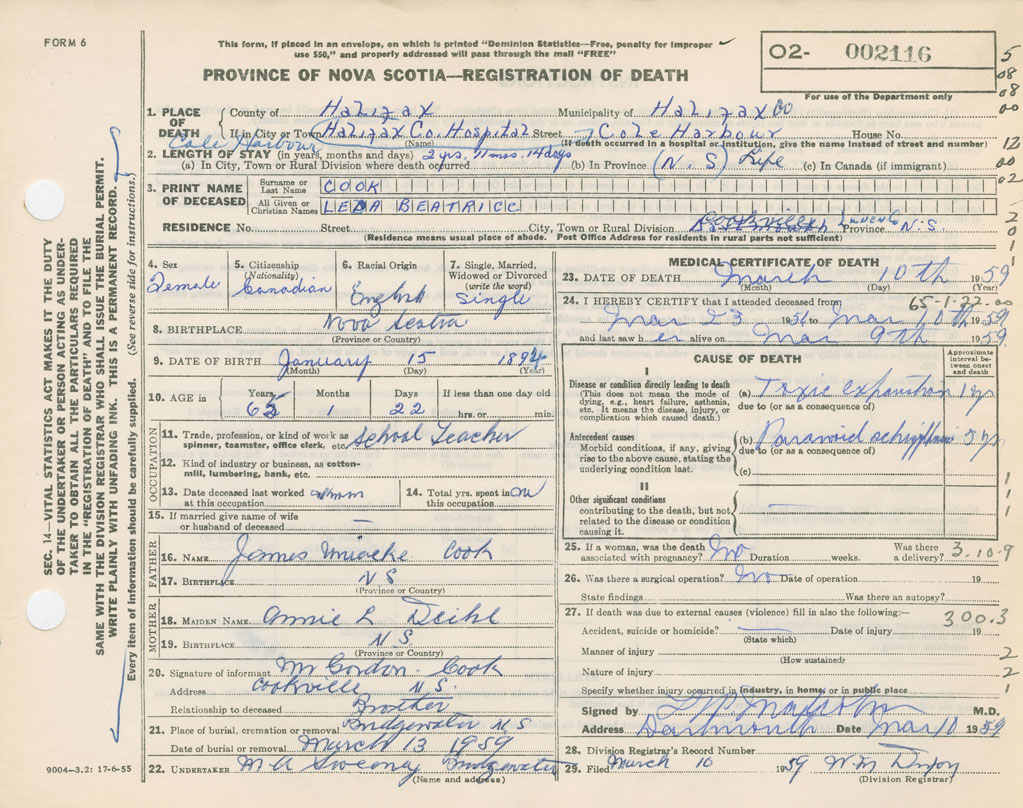 FORM 6
This form, if placed in an envelope, on which is printed "Dominion Statistics—Free, penalty for improper
use $50," and properly addressed will pass through the mail "FREE"
PROVINCE OF NOVA SCOTIA—REGISTRATION OF DEATH
02- 002116
For use of the Department only
5
08
08
00
12
00
02
2
0
1
1
SEC. 14—VITAL STATISTICS ACT MAKES IT THE DUTY
OF THE UNDERTAKER OR PERSON ACTING AS UNDER-
TAKER TO OBTAIN ALL THE PARTICULARS REQUIRED
IN THE "REGISTRATION OF DEATH" AND TO FILE THE
SAME WITH THE DIVISION REGISTRAR WHO SHALL ISSUE THE BURIAL PERMIT.
WRITE PLAINLY WITH UNFADING INK. THIS IS A PERMANENT RECORD.
Every item of information should be carefully supplied. (See reverse side for instructions.)
1. PLACE OF DEATH
County of Halifax Municipality of Halifax 00
If in City or Town Halifax Co. Hospital Street Cole Harbour House No.
Cole Harbour (Name) (If death occurred in a hospital or institution, give the name instead of street and number)
2. LENGTH OF STAY (in years, months and days) 2 yrs, 11 mos, 14 days
(a) In City, Town or Rural Division where death occurred (b) In Province (N.S) Life (c) In Canada (if immigrant)
3. PRINT NAME OF DECEASED
Surname or Last Name COOK
All Given or Christian Names LEDA BEATRICE
RESIDENCE No. Street City, Town or Rural Division Cookville Lunenb Province N.S.
(Residence means usual place of abode. Post Office Address for residents in rural parts not sufficient)
4. Sex Female
5. Citizenship (Nationality) Canadian
6. Racial Origin English
7. Single, Married, Widowed or Divorced (write the word) Single
8. BIRTHPLACE Nova Scotia
(Province or Country)
9. DATE OF BIRTH January 15 1894
(Month) (Day) (Year)
10. AGE in Years 65 Months 1 Days 22 If less than one day old hrs. or min.
OCCUPATION
11. Trade, profession, or kind of work as spinner, teamster, office clerk, etc. School Teacher
12. Kind of industry or business, as cotton-mill, lumbering, bank, etc.
13. Date deceased last worked at this occupation
14. Total yrs. spent in this occupation
15. If married give name of wife or husband of deceased —
FATHER
16. NAME James Cook
17. BIRTHPLACE N S
(Province or Country)
MOTHER
18. MAIDEN NAME Annie L Deihl
19. BIRTHPLACE N.S.
(Province or Country)
20. Signature of informant Mr Gordon Cook
Address Cookville N.S.
Relationship to deceased Brother
21. Place of burial, cremation or removal Bridgewater N S
Date of burial or removal March 13 1959
22. UNDERTAKER Sweeny Bridgewater
(Name and address)
9004—3.2: 17-6-55
MEDICAL CERTIFICATE OF DEATH
23. DATE OF DEATH March 10th 1959
(Month) (Day) (Year)
24. I HEREBY CERTIFY that I attended deceased from 65-1-22-00
Mar 23 1956 to Mar 10th 1959
and last saw h er alive on Mar 9th 1959
CAUSE OF DEATH
Approximate interval between onset and death
I
Disease or condition directly leading to death
(This does not mean the mode of dying, e.g., heart failure, asthenia, etc. It means the disease, injury, or complication which caused death.)
(a) Toxic exhaustion 1 yr
due to (or as a consequence of)
Antecedent causes
Morbid conditions, if any, giving rise to the above cause, stating the underlying condition last.
(b) Paranoid 5 yrs
due to (or as a consequence of)
(c)
II
Other significant conditions
contributing to the death, but not related to the disease or condition causing it.
1
1
1
25. If a woman, was the death associated with pregnancy? No Duration weeks. Was there a delivery? 3.10.9
26. Was there a surgical operation? No Date of operation 19
State findings Was there an autopsy?
27. If death was due to external causes (violence) fill in also the following:— 300.3
Accident, suicide or homicide? — Date of injury 19
(State which)
Manner of injury 2
(How sustained)
Nature of injury 2
Specify whether injury occurred in industry, in home, or in public place 1
Signed by M.D.
Address Dartmouth Date Mar 10 1959
28. Division Registrar's Record Number
29. Filed March 10 1959
(Division Registrar)